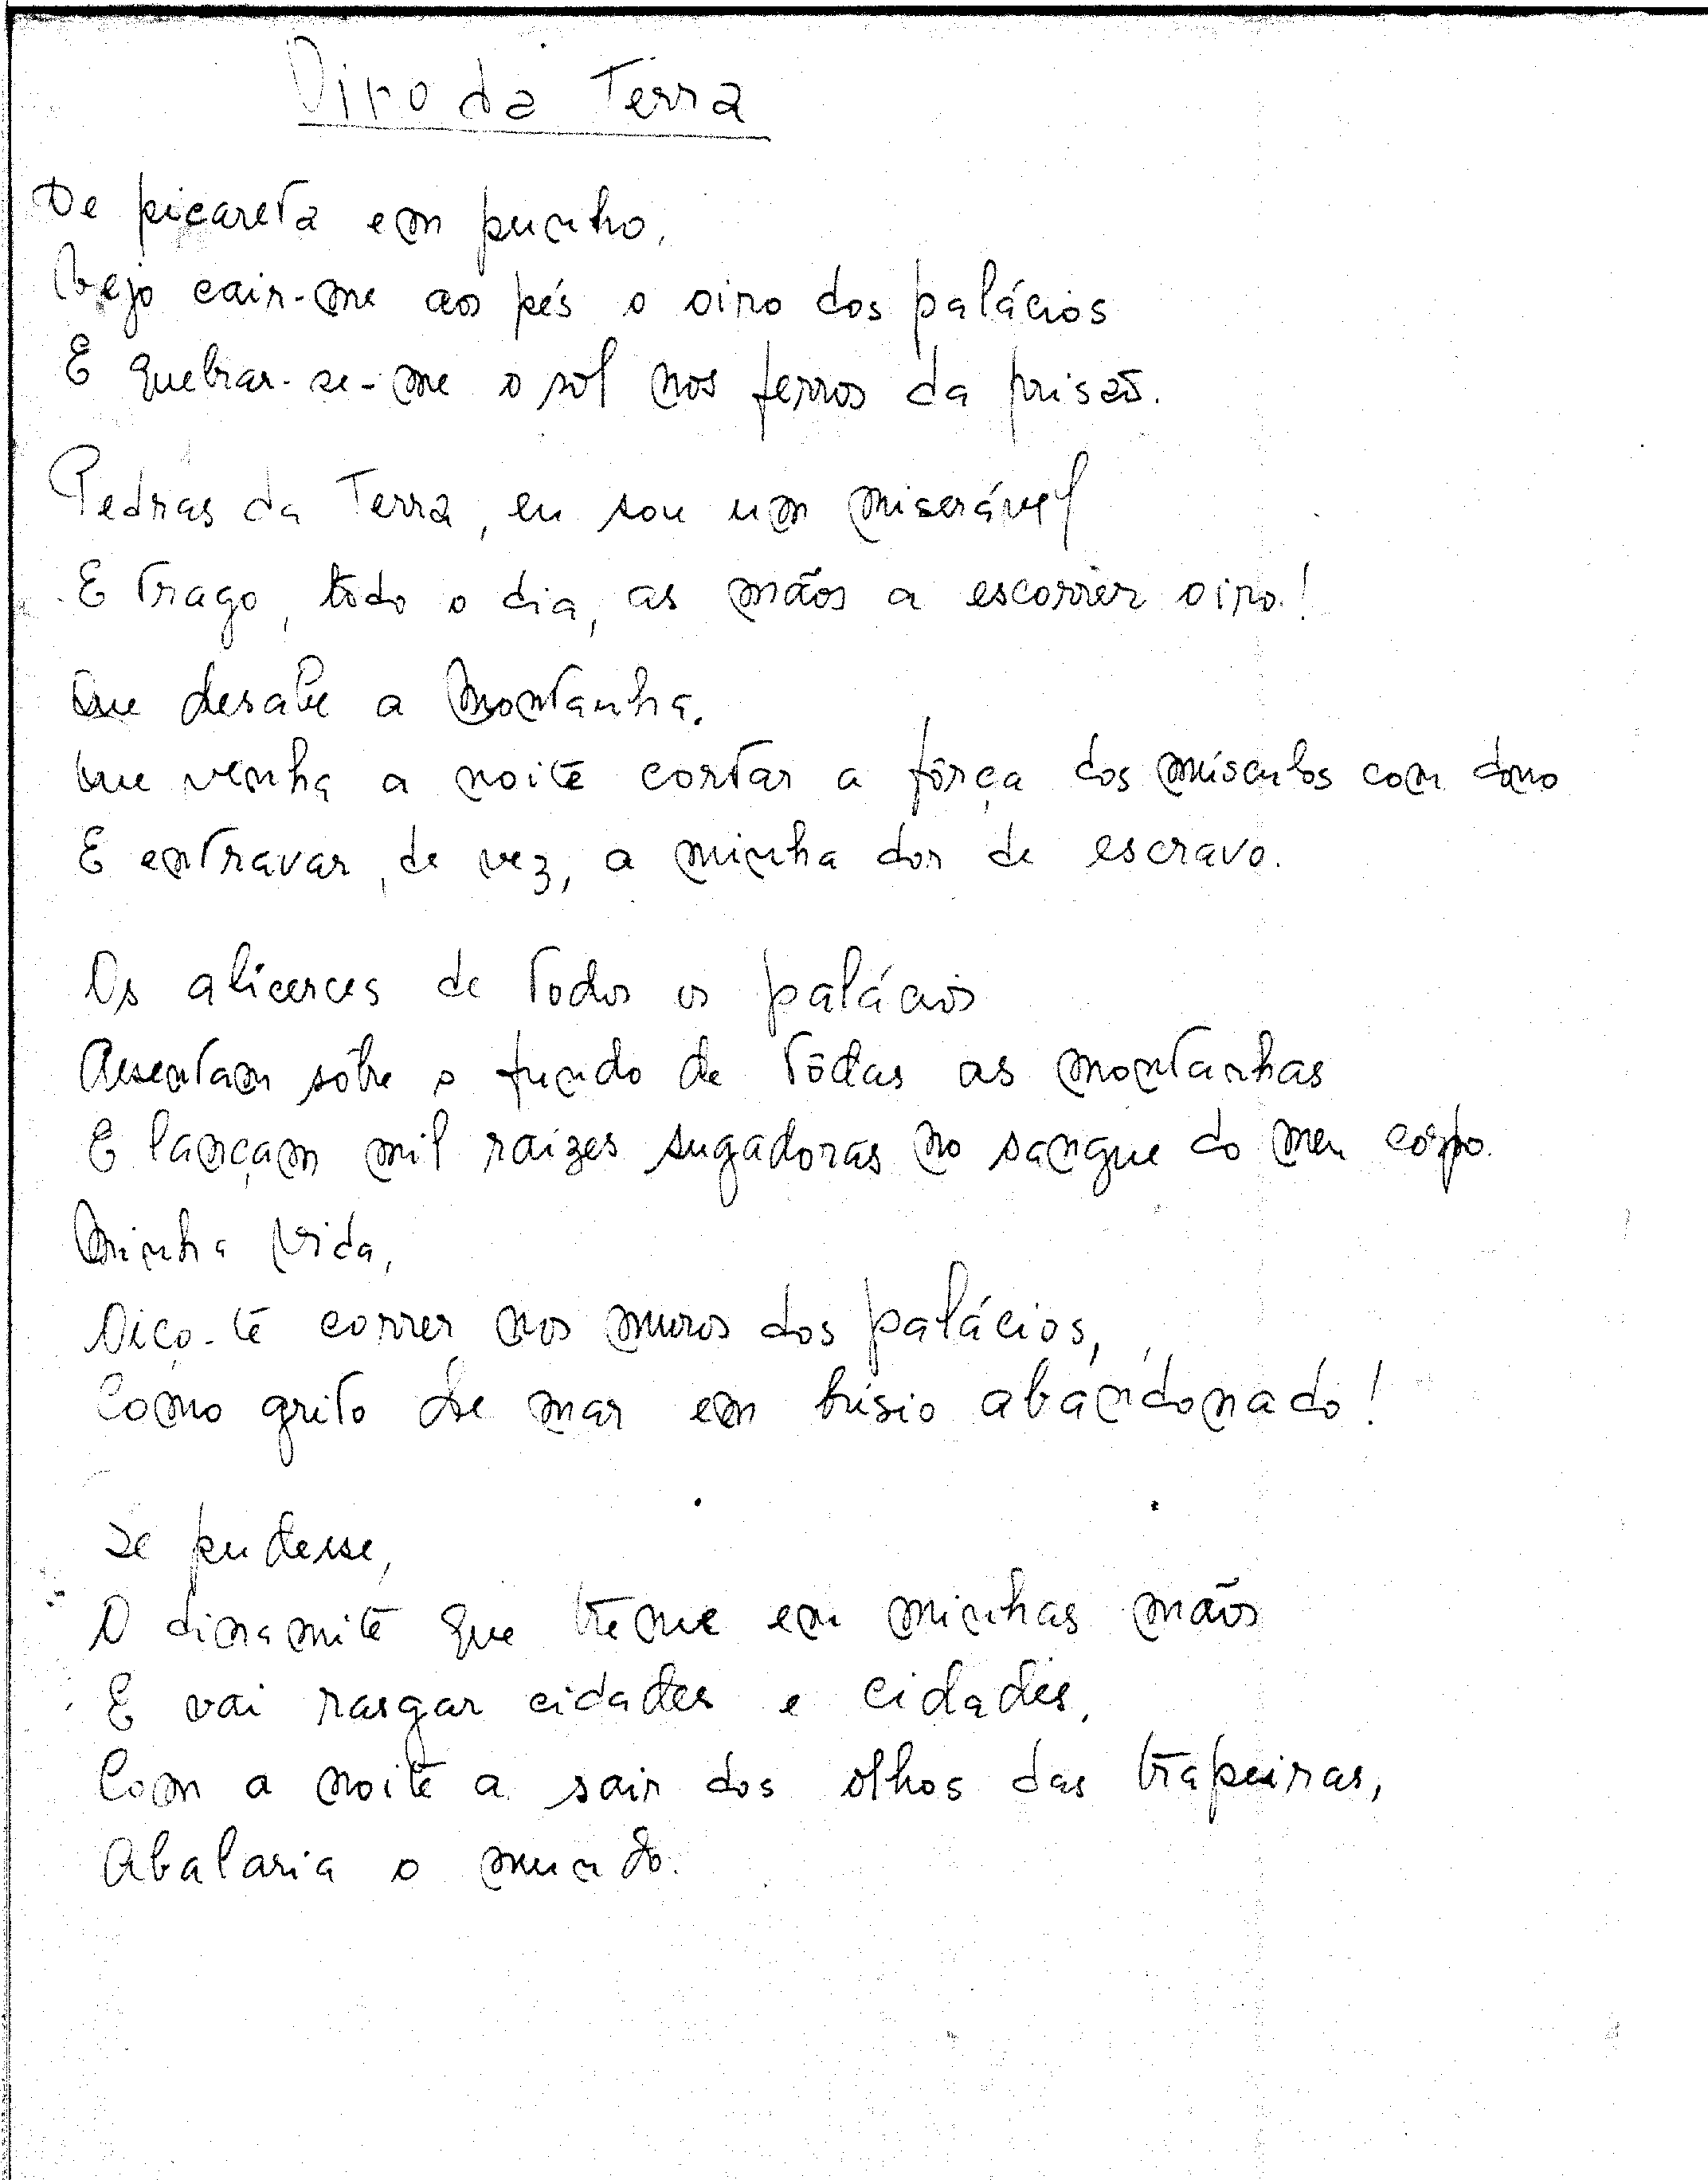 Oiro da Terra
De picareta em punho,
Vejo cair-me aos pés o oiro dos palácios
E quebrar-se-me o sol nos ferros da prisão.
Pedras da Terra, eu sou um miserável
E trago, todo o dia, as mãos a escorrer oiro!
Que desabe a montanha.
Que venha a noite cortar a fôrça dos músculos com dono
E entravar, de vez, a minha dor de escravo.
Os alicerces de todos os palácios
Assentam sôbre o fundo de tôdas as montanhas
E lançam mil raízes sugadoras no sangue do meu corpo.
Minha vida,
Oiço-te correr nos muros dos palácios,
Como grito de mar em búsio abandonado!
Se pudesse,
O dinamite que treme em minhas mãos
E vai rasgar cidades e cidades,
Com a noite a sair dos olhos das trapeiras,
Abalaria o mundo.